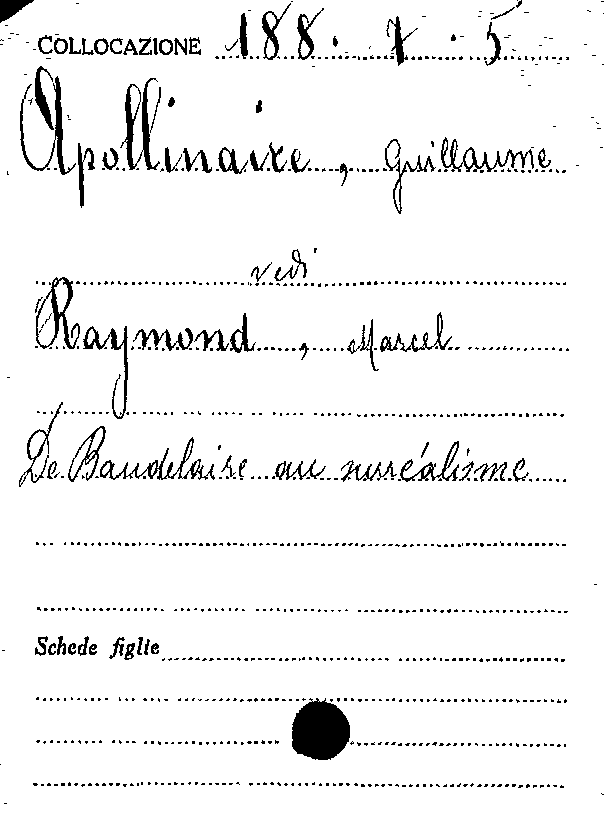 COLLOCAZIONE 188. 7. 5
Apollinaire, Guillaume
vedi
Raymond, Marcel
De Baudelaire au surréalisme
Schede figlie